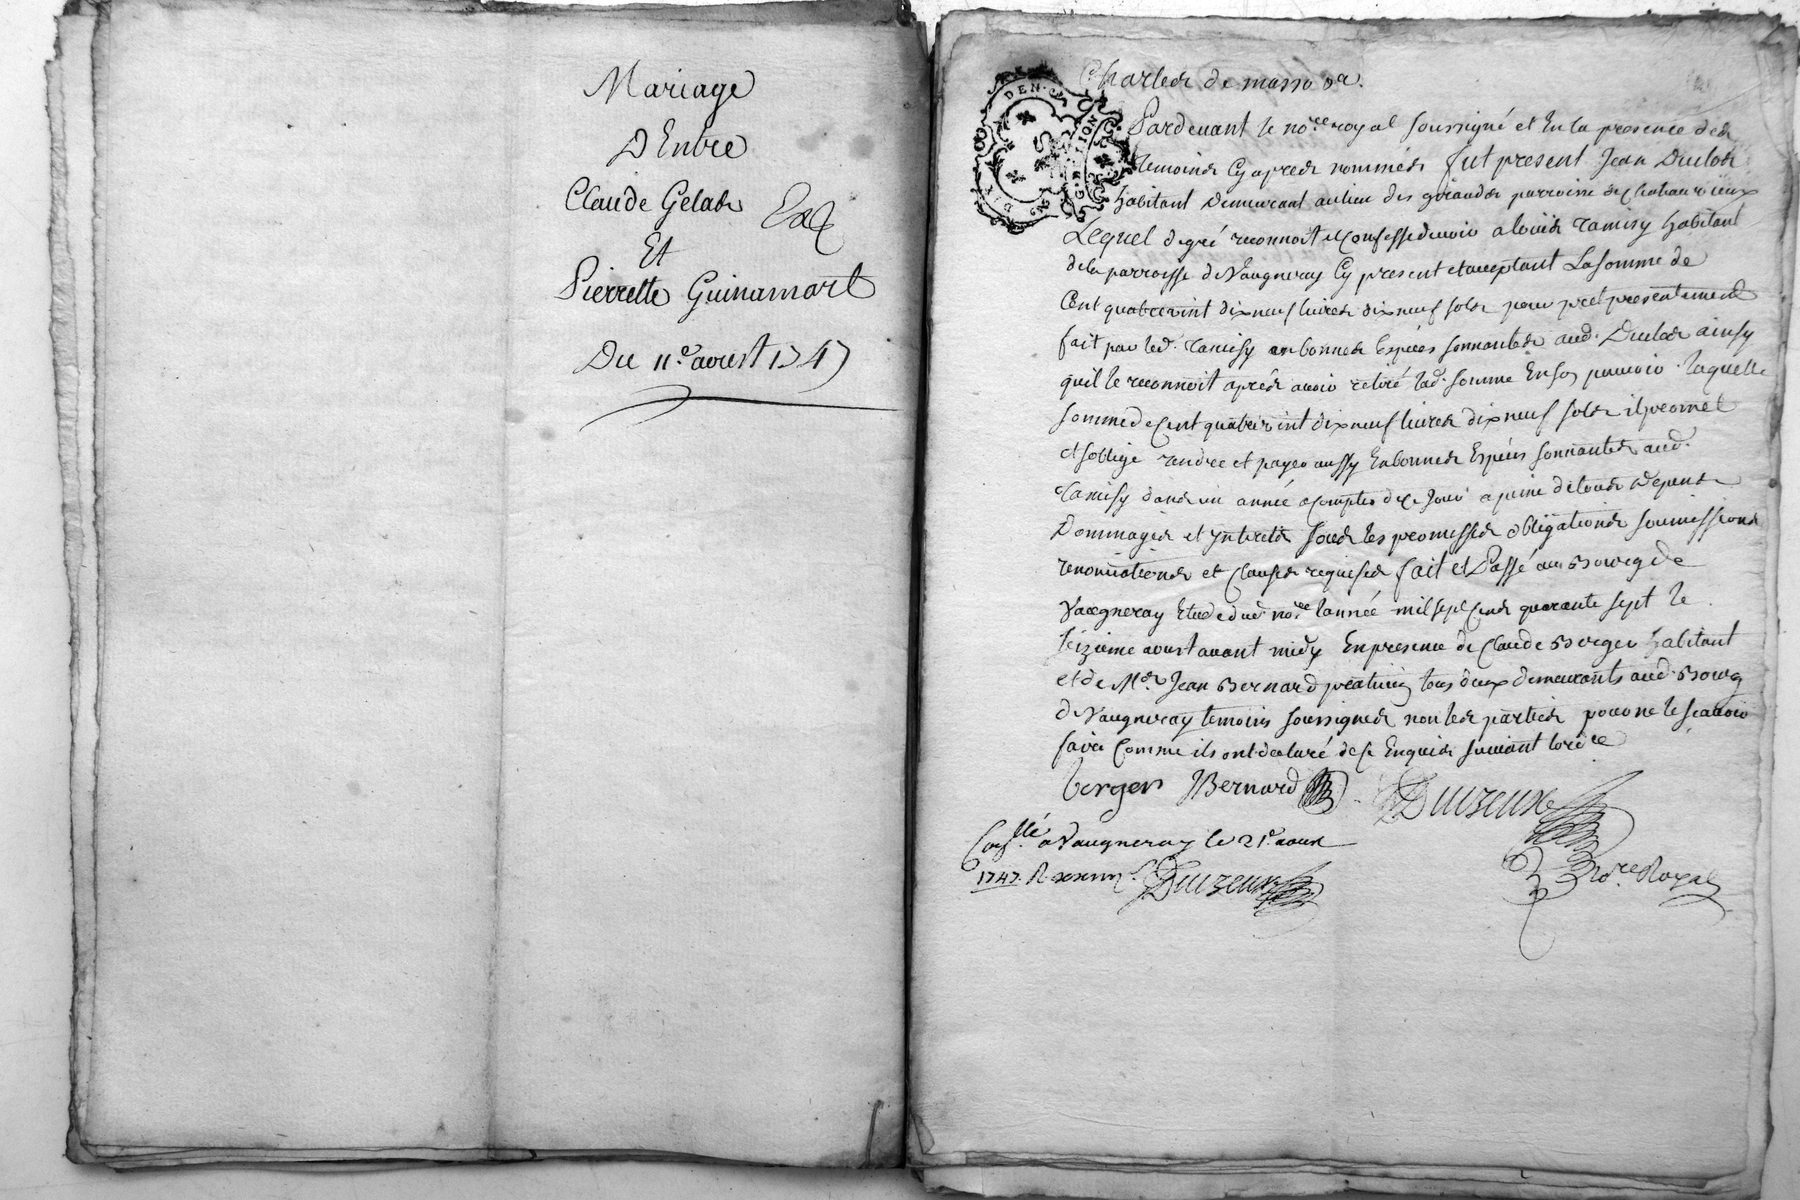 Mariage
D Entre
Claude Gelas
Exp
Et
Pierrette Guinamart
Du 11.e aoust 1747
GEN. DE LION
Pardevant le no.re royal soussigné et En la presence des
temoins Cy apres nommés fut present Jean Duclos
habitant Demeurant au lieu des girauds parroisse de Chateauvieux
Lequel de gré reconnoit et Confesse devoir a louis ramisy habitant
de la parroisse de Vaugneray Cy present et acceptant La somme de
Cent quatrevint dix neuf livres dix neuf sols pour pret presentement
fait par led. ramisy en bonnes Espéces sonnantes aud. Duclos ainsy
quil le reconnoit aprés avoir retiré lad. somme En son pouvoir. laquelle
somme de Cent quatrevint dix neuf livres dix neuf sols il promet
et soblige rendre et payer aussy En bonnes Espéces sonnantes aud.
ramisy dans un année a Compter de Ce Jour a peine de tous Depens
Dommages et ynterets sous les promesses obligations soumissions
renonciations et Clauses requises fait et Passé au Bourg de
Vaugneray Etude dud. no.re lannée mil sept Cens quarante sept le
seizieme aoust avant midy En presence de Claude Berger habitant
et de M.r Jean Bernard praticien tous deux demeurants aud. Bourg
de Vaugneray temoins soussignés non les parties pour ne le sçavoir
faire Comme ils ont declaré de Ce Enquis suivant lordre
berger JBernard
Duizeux
no.re Royal
Con.llé a Vaugneray le 21.e aoust
1747. R. Duizeux